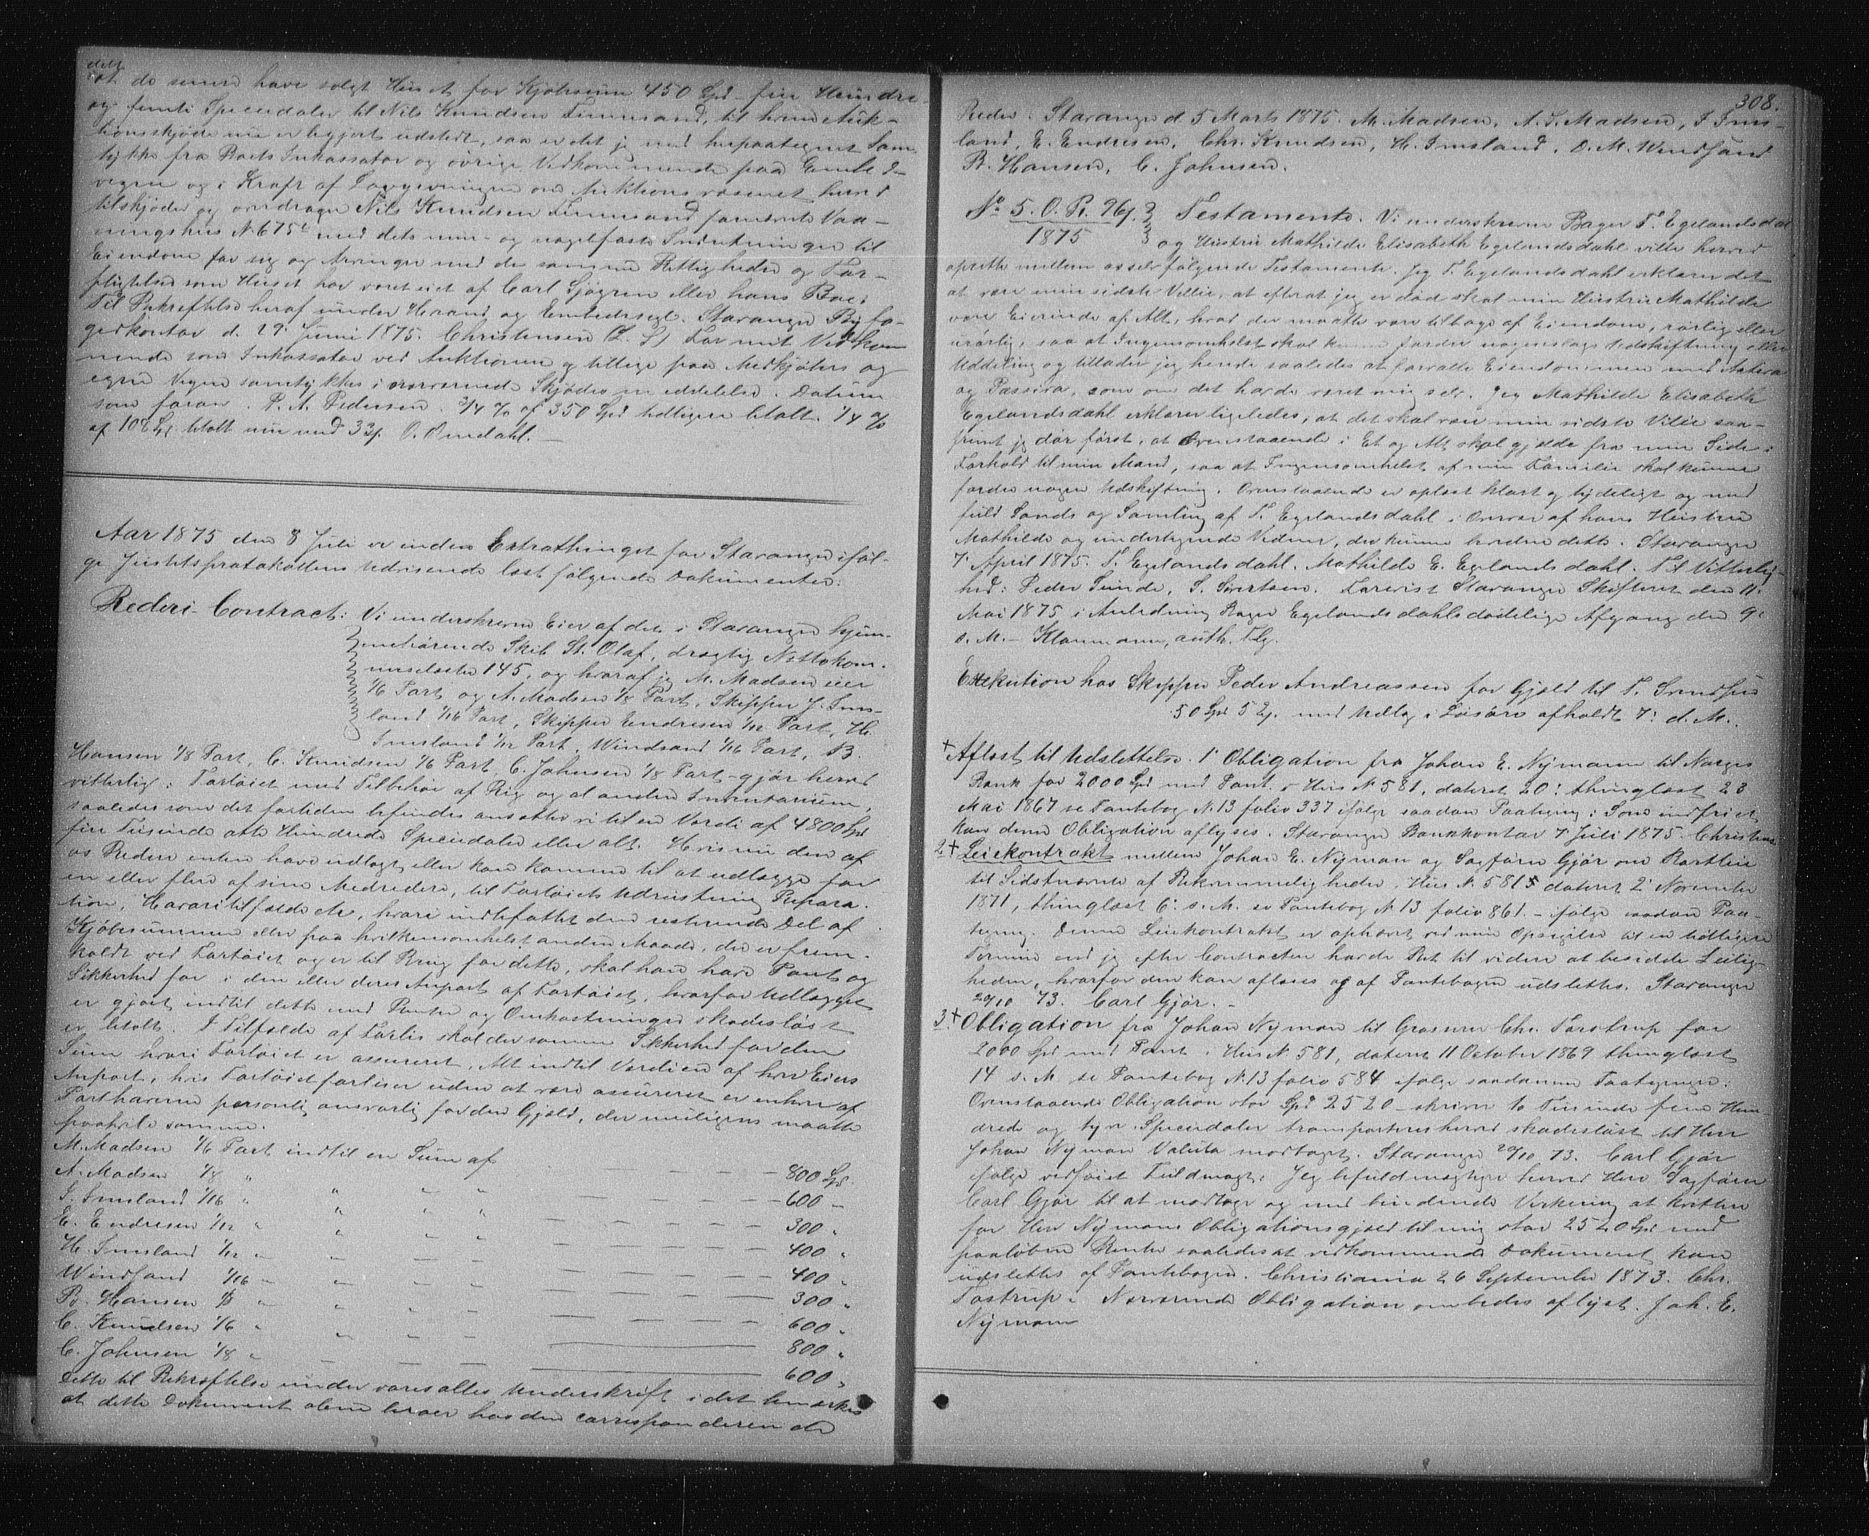 at de senere have solgt Huset for Kjøbesum 450 Spd – fire Hundre
og femti Speciedaler til Nils Knudsen Finnesand, til hvem Auk-
tionsskjøde nu er begjært udstedt, saa er det jeg med hospaategnet Sam-
tykke fra Boets Inkassator og øvrige Vedkommende paa Embeds-
vegne og i Kraft af Lovgivningen om Auktionsvæsenet herved
tilskjøder og overdrager Nils Knudsen Finnesand fornævnte Vaa-
ningshus N 675 med dets mur- og nagelfaste Indretninger til
Eiendom for sig og Arvinger med de samme Rettigheder og For-
pligtelser som Huset har været eiet af Carl Sjøgren eller hans Bo.
Til Bekræftelse heraf under Haand og Embedssegl. Stavanger Byfo-
gedkontor d. 29 Juni 1875. Christensen (L. S.) For mit Vedkom
mende som Inkassator ved Auktionen og tillige paa Medkjøbers og
egne Vegne samtykkes i nærværende Skjødes meddelelse. Datum
som foran. P. A. Pedersen. 3/4 % af 350 Spd tidligere betalt. 1/4 %
af 100 Spd betalt nu med 33 s. O. Omdahl.
Aar 1875 den 8 Juli er inden Extrathinget for Stavanger iføl-
ge Justitsprotokollens Udvisende læst følgende Dokumenter:
Rederi-Contract: Vi underskrevne Eier af det i Stavanger hjem-
mehørende Skib St. Olaf, drægtig Nettokom-
merselæster 145, og hvoraf jeg M. Madsen eier
1/6 Part og A. Madsen 1/8 Part, Skipper J. Ims-
land 1/16 Part, Skipper Endresen 1/12 Part, H.
Imsland 1/12 Part, Windsand 1/16 Part, B
Hansen 1/8 Part, C. Knudsen 1/6 Part C. Johnsen 1/8 Part – gjør herved
vitterlig: Fartøiet med Tilbehør af Rig og al anden Inventarium,
saaledes som det fortiden befindes ansætter vi til en Værdi af 4800 Spd
fire Tusinde otte Hundrede Speciedaler eller alt. Hvis nu den af
os Redere enten have udlagt eller kan komme til at udlægge for
en eller flere af sine Medredere, til Fartøiets Udrustning Repara-
tion, Havaritilfælde etc, hvori indbefattet den resterende Del af
Kjøbesummen eller paa hvilkensomhelst anden Maade, der er frem-
holdt ved Fartøiet og er til Brug for dette, skal han have Pant og
Sikkerhed for i den eller deres Anpart af Fartøiet, hvorfor Udlægget
er gjort indtil dette med Renter og Omkostninger skadesløst
er betalt. I Tilfælde af Forlis skal der samme Sikkerhed for den
Sum hvori Fartøiet er assureret, Alt indtil Værdien af hver Eiers
Anpart, hvis Fartøiet forliser uden at være assureret er enhver af
Parthaverne personlig ansvarlig for den Gjæld, der muligens maatte
paahvile samme.
M. Madsen 1/6 Part indtil en Sum af 800 Spd.
A. Madsen 1/8 " " " " 600 –
J. Imsland 1/16 " " " " 300 "
E. Endresen 1/12 " " " " 400 "
H. Imsland 1/12 " " " " 400 "
Windsand 1/16 " " " " 300 "
B. Hansen 1/8 " " " " 600 "
C. Knudsen 1/6 " " " " 800 "
C. Johnsen 1/8 " " " " 600 "
Dette til Bekræftelse under vores alles Underskrift i det bemærkes
at dette Dokument alene beror hos den corresponderende
308.
Reder. Stavanger d 5 Marts 1875. M. Madsen, A. S. Madsen, J Ims-
land, E. Endresen, Chr. Knudsen, H. Imsland, O. M. Windsand
B. Hansen, C. Johnsen.
No 5. O. Pr. 96 s. Testamente. Vi underskrevne Bager T. Egelandsdal
1875 og Hustru Mathilde Elisabeth Egelandsdahl ville herved
oprette mellem os selv følgende Testamente. Jeg T. Egelandsdahl erklærer det
at være min sidste Villie, at efterat jeg er død skal min Hustru Mathilde
være Eierinde af Alt, hvad der maatte være tilbage af Eiendom, rørlig eller
urørlig, saa at Ingensomhelst skal kunne fordre nogenslags Udskiftning eller
Uddeling og tillader jeg hende saaledes at forvalte Eiendommen med Activa
og Passiva, som om det havde været mig selv. Jeg Mathilde Elisabeth
Egelandsdahl erklærer ligeledes, at det skal være min sidste Vilie saa-
fremt jeg dør først, at Ovenstaaende i Et og Alt skal gjælde fra min Side i
Forhold til min Mand, saa at Ingensomhelst af min Familie skal kunne
fordre nogen Udskiftning. Ovenstaaende er oplæst klart og tydeligt og med
fuld Sands og Samling af T. Egelandsdahl i Overvær af hans Hustru
Mathilde og undertegnede Vidner, der kunne bevidne dette. Stavanger
7 April 1875. T. Egelandsdahl. Mathilde E. Egelandsdahl. Til Vitterlig-
hed: Peder Sunde, S. Sivertsen. Forevist Stavanger Skifteret den 11.
Mai 1875 i Anledning Bager Egelandsdahls dødelige Afgang den 9:
s. M. – Klaumann, auth. Flg.
Exekution hos Skipper Peder Andreassen for Gjæld til T. Svendsen
50 Spd 52 s. med Udlæg i Løsøre afholdt 7: d. M.
+ Aflæst til Udslettelse. 1 Obligation fra Johan E. Nyman til Norges
Bank for 2000 Spd med Pant i Hus N 581, dateret 20: thinglæst 23
Mai 1867 se Pantebog N 13 folio 337 ifølge saadan Paategning: Som indfriet
kan denne Obligation aflyses. Stavanger Bankkontor 7 Juli 1875. Christense
2 + Leiekontrakt mellem Johan E. Nyman og Sagfører Gjør om Bortleie
til Sidstnævnte af Bekvemmeligheder i Hus N. 581 dateret 2 November
1871, thinglæst 6: s. M. se Pantebog N 13 folio 861 – ifølge saadan Paa-
tegning. Denne Leiekontrakt er ophævet ved min Opsigelse til en tidligere
Termin end jeg efter Contracten havde Ret til videre at besidde Leilig-
heden, hvorfor den kan aflæses og af Pantebogen udslettes. Stavanger
20/10 73. Carl Gjør. –
3. + Obligation fra Johan Nyman til Grosserer Chr. Tostrup for
2000 Spd med Pant i Hus N 581, dateret 11 October 1869 thinglæst
14 s. M. se Pantebog N. 13 folio 584 ifølge saadanne Paategninger:
Ovenstaaende Obligation stor Spd 2520 – skriver to Tusinde fem Hun-
drede og tyve Speciedaler transporteres herved skadesløst til Herr
Johan Nyman Valuta modtaget. Stavanger 20/10 73. Carl Gjør
ifølge vedføiet Fuldmagt: Jeg befuldmægtiger herved Herr Sagfører
Carl Gjør til at modtage og med bindende Virkning at kvittere
for Herr Nymans Obligationsgjæld til mig stor 2520 Spd med
paaløben Rente saaledes at vedkommende Dokument kan
udslettes af Pantebogen. Christiania 26 September 1873. Chr.
Tostrup. Nærværende Obligation ombedes aflyst. Joh. E.
Nyman